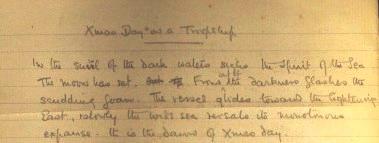 Xmas Day on a Troopship
In the swirl of the dark waters sighs the Spirit of the Sea
The moon has set. From aft the darkness flashes the
scudding foam. The vessel glides toward the lightening
East, slowly the wide sea reveals its monotonous
expanse - it is the dawn of Xmas day.